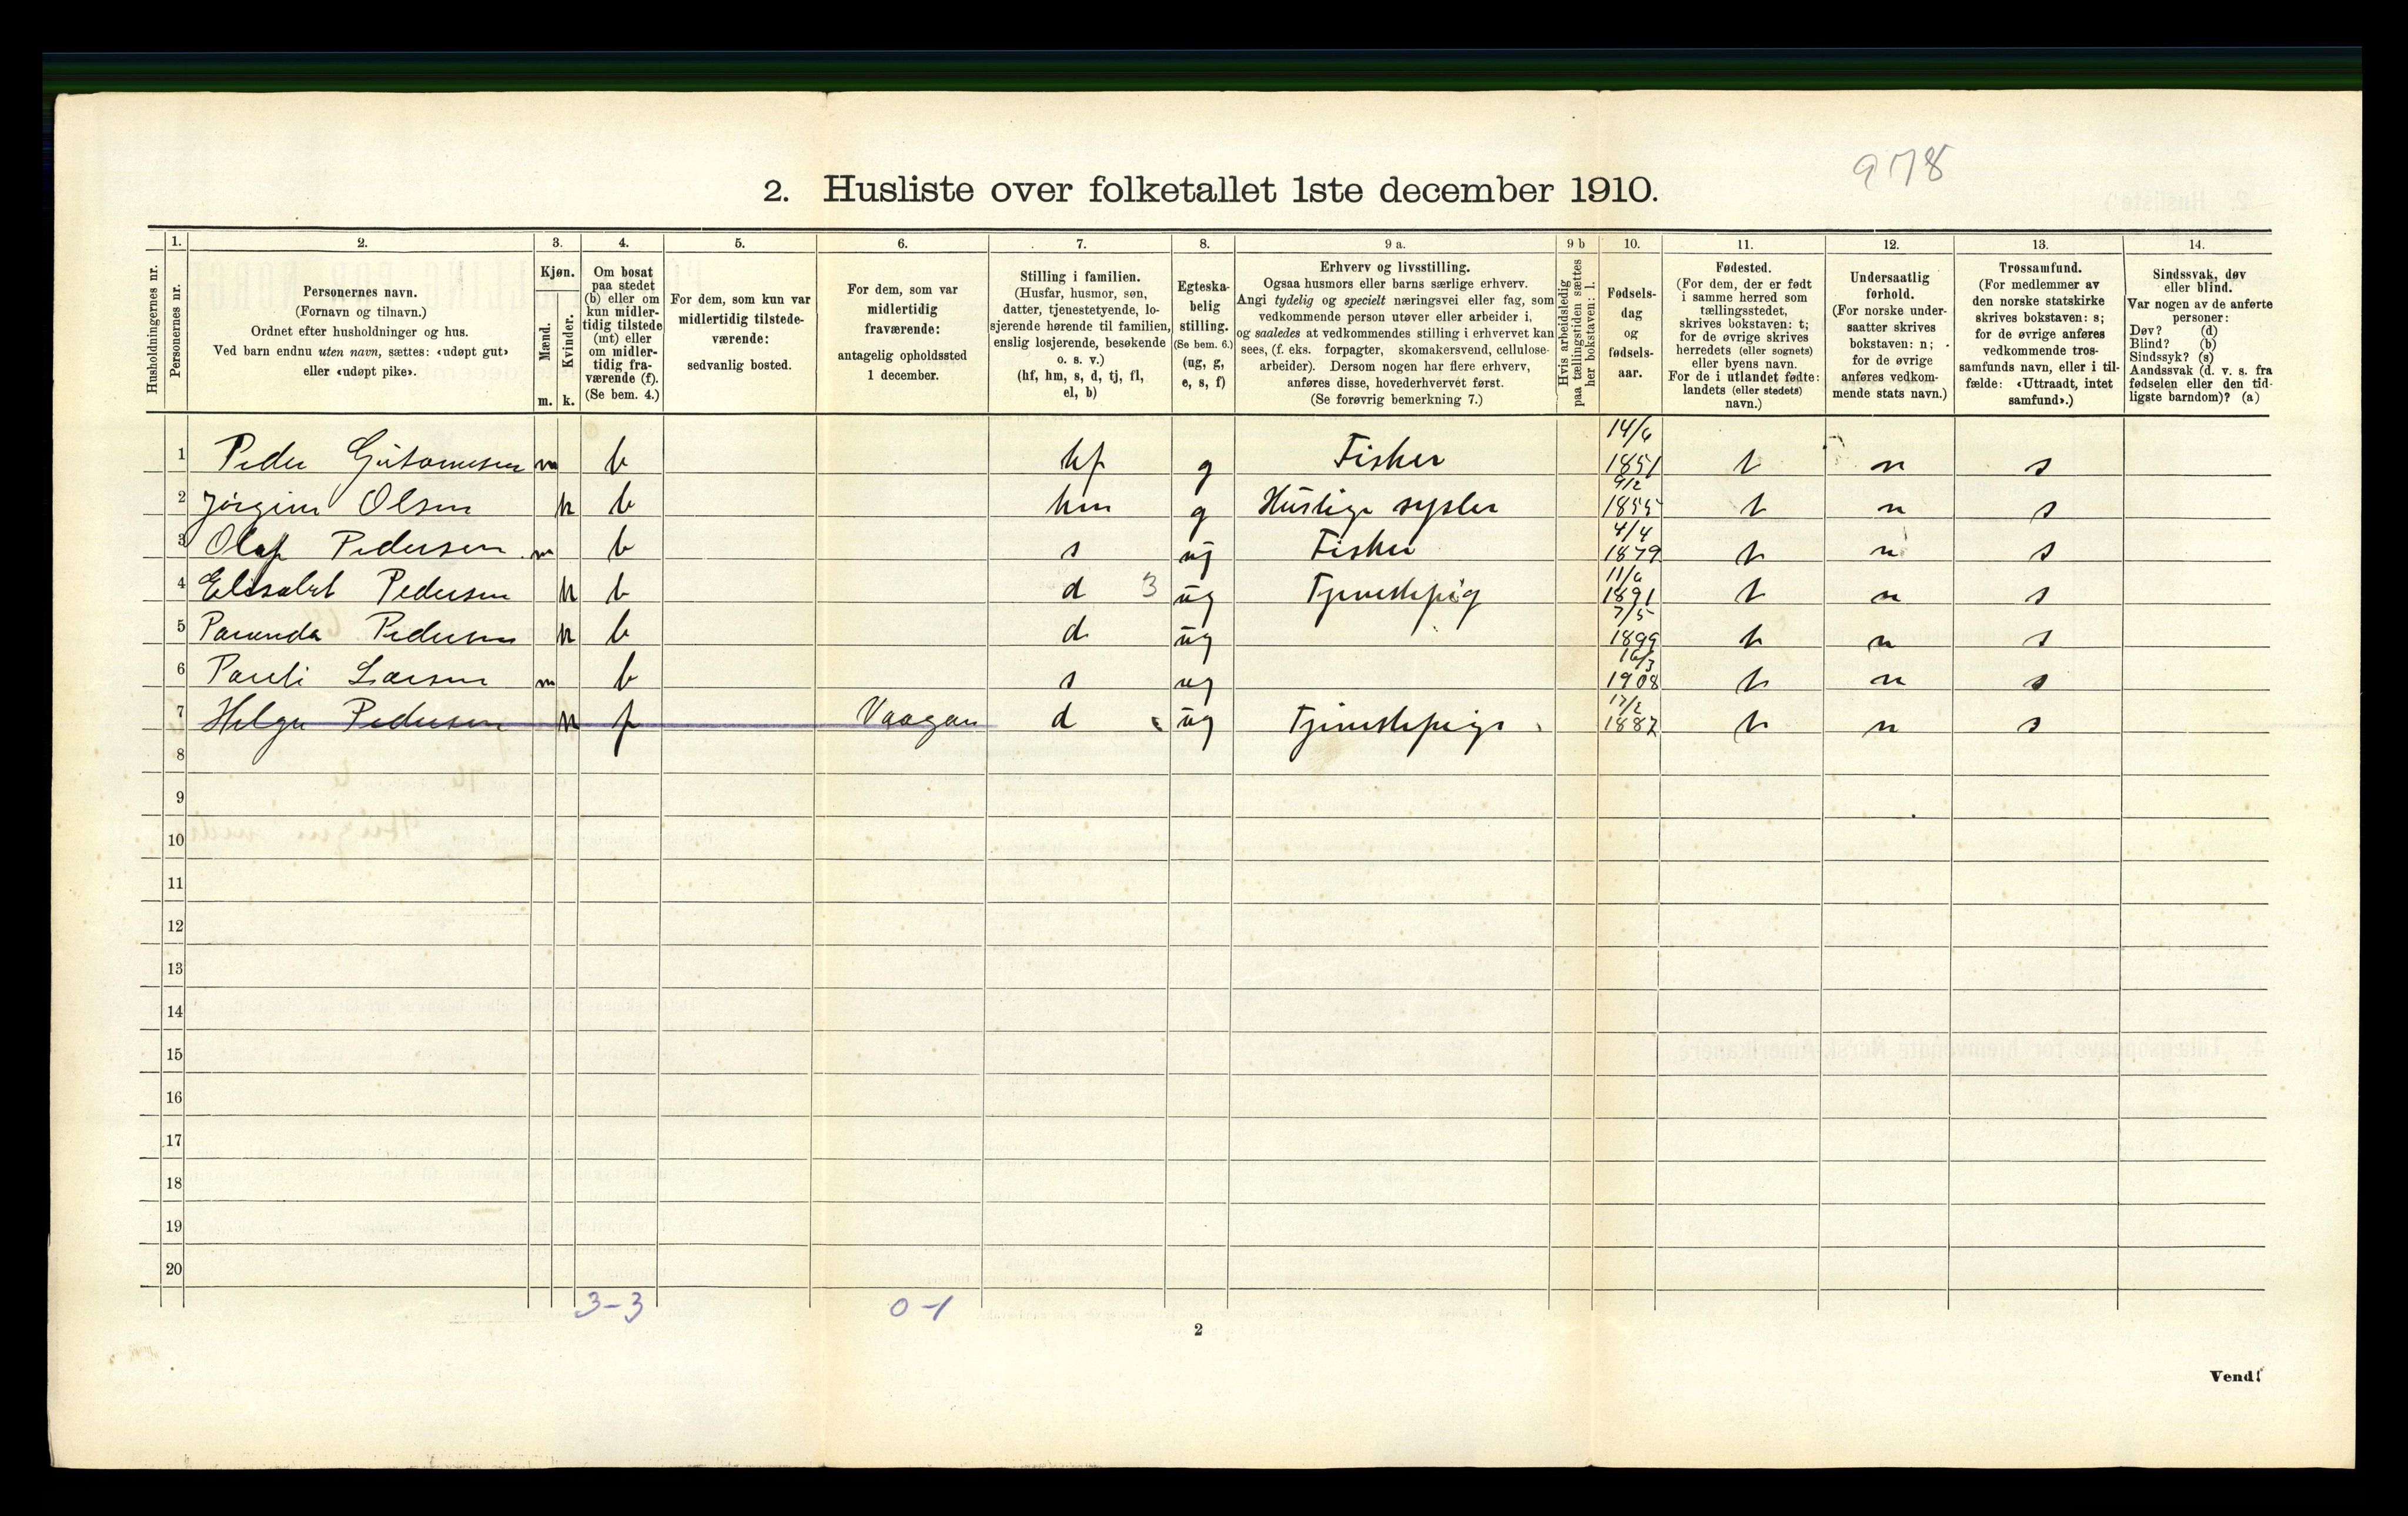 978
2. Husliste over folketallet 1ste december 1910.
Husholdningernes nr.
1.
Personernes nr.
2.
Personernes navn.
(Fornavn og tilnavn.)
Ordnet efter husholdninger og hus.
Ved barn endnu uten navn, sættes: «udøpt gut»
eller «udøpt pike».
3.
Kjøn.
Mænd.
Kvinder.
m. k.
4.
Om bosat
paa stedet
(b) eller om
kun midler-
tidig tilstede
(mt) eller
om midler-
tidig fra-
værende (f).
(Se bem. 4.)
5.
For dem, som kun var
midlertidig tilstede-
værende:
sedvanlig bosted.
6.
For dem, som var
midlertidig
fraværende:
antagelig opholdssted
1 december.
7.
Stilling i familien.
(Husfar, husmor, søn,
datter, tjenestetyende, lo-
sjerende hørende til familien,
enslig losjerende, besøkende
o. s. v.)
(hf, hm, s, d, tj, fl,
el, b)
8.
Egteska-
belig
stilling.
(Se bem. 6.)
(ug, g,
e, s, f)
9 a.
Erhverv og livsstilling.
Ogsaa husmors eller barns særlige erhverv.
Angi tydelig og specielt næringsvei eller fag, som
vedkommende person utøver eller arbeider i,
og saaledes at vedkommendes stilling i erhvervet kan
sees, (f. eks. forpagter, skomakersvend, cellulose-
arbeider). Dersom nogen har flere erhverv,
anføres disse, hovederhvervet først.
(Se forøvrig bemerkning 7.)
9 b
Hvis arbeidsledig
paa tællingstiden sættes
her bokstaven: l.
10.
Fødsels-
dag
og
fødsels-
aar.
11.
Fødested.
(For dem, der er født
i samme herred som
tællingsstedet,
skrives bokstaven: t;
for de øvrige skrives
herredets (eller sognets)
eller byens navn.
For de i utlandet fødte:
landets (eller stedets)
navn.)
12.
Undersaatlig
forhold.
(For norske under-
saatter skrives
bokstaven: n;
for de øvrige
anføres vedkom-
mende stats navn.)
13.
Trossamfund.
(For medlemmer av
den norske statskirke
skrives bokstaven: s;
for de øvrige anføres
vedkommende tros-
samfunds navn, eller i til-
fælde: «Uttraadt, intet
samfund».)
14.
Sindssvak, døv
eller blind.
Var nogen av de anførte
personer:
Døv? (d)
Blind? (b)
Sindssyk? (s)
Aandssvak (d. v. s. fra
fødselen eller den tid-
ligste barndom)? (a)
1 Peder m b hf g Fisker 14/6 1851 t n s
2 Jørgine Olsen k b hm g Huslige sysler 9/2 1855 t n s
3 Olaf Pedersen m b s ug Fisker 4/4 1879 t n s
4 Elisabet Pedersen k b d 3 ug Tjenestepig 11/6 1891 t n s
5 Pedersen k b d ug 7/5 1899 t n s
6 Larsen m b s ug 16/3 1908 t n s
7 Helga Pedersen k f Vaagan d ug Tjenestepige 17/2 1887 t n s
8
9
10
11
12
13
14
15
16
17
18
19
20
3-3 0-1
2
Vend!